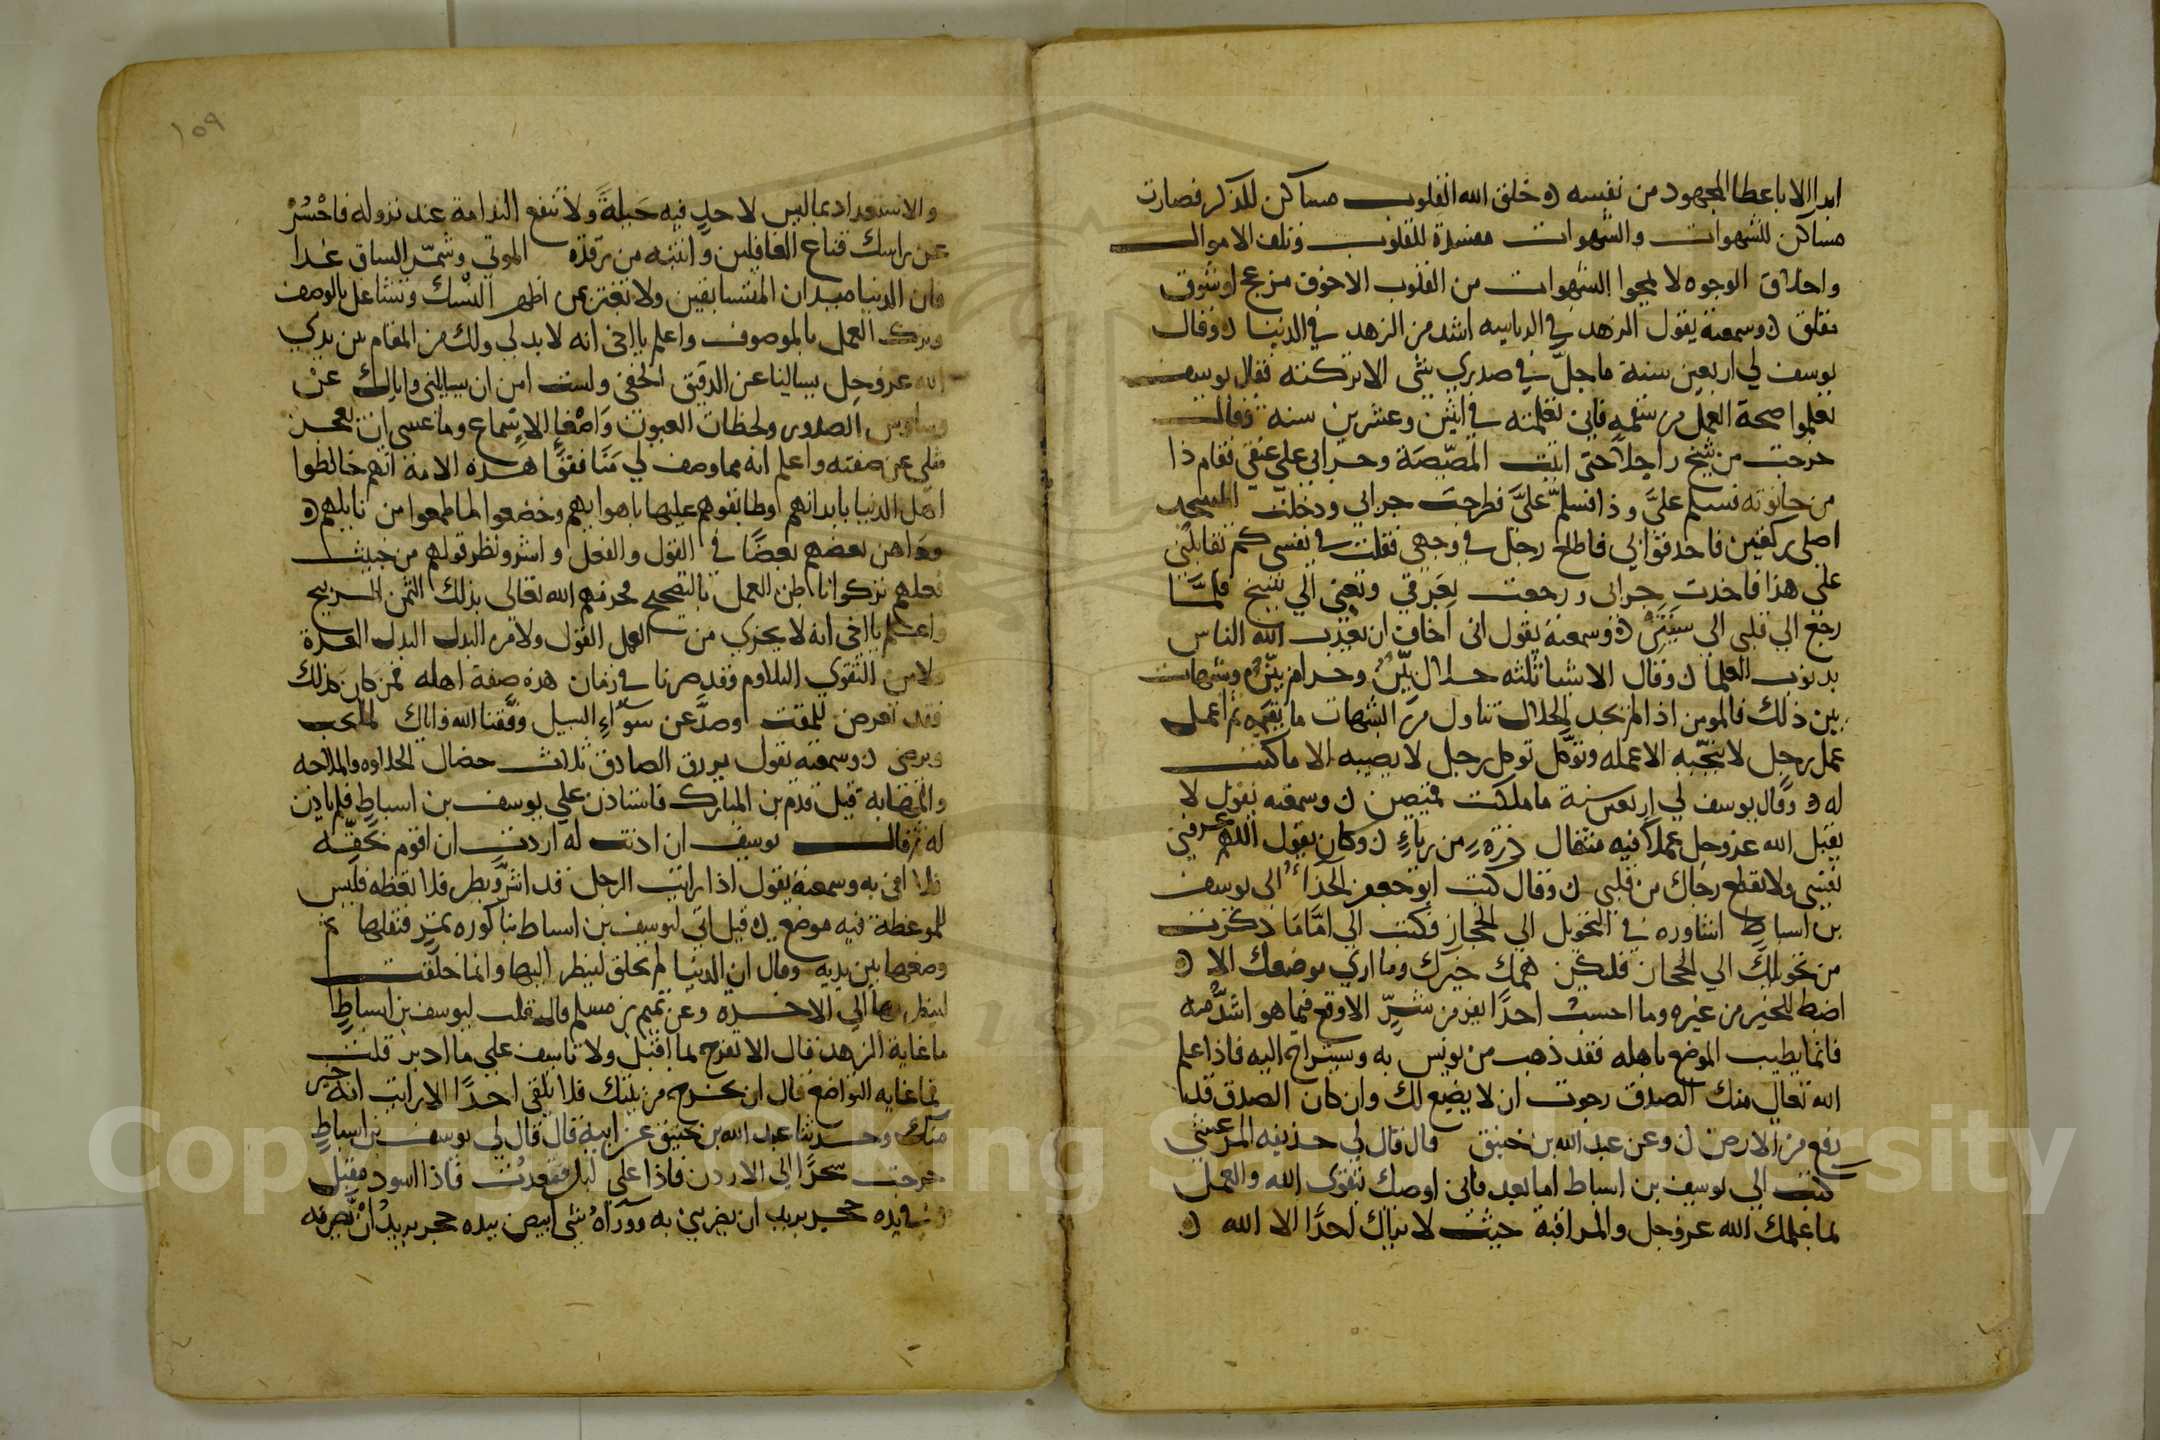 ابدا الا باعطا المجهود من نفسه ه خلق الله القلوب مساكن للذكر فصارت
مساكن للشهوات والشهوات مفسدة للقلوب وتلف الاموال
واخلاق الوجوه لا يمحوا الشهوات من القلوب الا خوف مزعج او شوق
مقلق ه وسمعته يقول الزهد في الرياسه اشد من الزهد في الدنيا ه وقال
يوسف لي اربعين سنة ما حل في صدري شي الا تركته فقال يوسف
تعلموا صحة العمل من سقمه فاني تعلمته في اثنين وعشرين سنه وقال
خرجت من شيح راجلا حتى اتيت المصيصة وجرابي على عنقي فقام ذا
من حانوته فسلم علي وذا فسلم علي فطرحت جرابي ودخلت المسجد
اصلي ركعتين فاحدقوا بي فاطلع رجل في وجهي فقلت في نفسي كم تقابلني
على هذا فاخذت جرابي ورجعت بعرقي وتعبي الي شيح فلما
رجع الي قلبي الي سنتين ه وسمعته يقول اني اخاف ان يعذب الله الناس
بذنوب العلما ه وقال الاشيا ثلثه حلال بين وحرام بين وشبهات
بين ذلك فالمومن اذا لم يجد الحلال تناول من الشبهات ما يقيمه ثم اعمل
عمل رجل لا ينجيه الا عمله وتوكل توكل رجل لا يصيبه الا ما كتب
له ه وقال يوسف لي اربعين سنة ما ملكت قميصين ه وسمعته يقول لا
يقبل الله عز وجل عملا فيه مثقال ذرة من رياء ه وكان يقول اللهم عرفني
نفسي ولا تقطع رجاك من قلبي ه وقال كتب ابو جعفر الحذاء الى يوسف
بن اسباط اشاوره في التحويل الي الحجاز فكتب الي اما ما ذكرت
من تحويلك الي الحجاز فليكن همك خبزك وما اري موضعك الا
اضبط للخبز من غيره وما احسب احدا يفر من شر الا وقع فيما هو اشد منه
فانما يطيب الموضع باهله فقد ذهب من يونس به ويستراح اليه فاذا علم
الله تعالى منك الصدق رجوت ان لا يضيع لك وان كان الصدق قد
رفع من الارض ه وعن عبد الله بن خبيق قال قال لي حذيفه المرعشي
كتب الي يوسف بن اسباط اما بعد فاني اوصيك بتقوى الله والعمل
بما علمك الله عز وجل والمراقبة حيث لا يراك احدا الا الله ه
١٥٩
والاستعداد بما ليس لاحد فيه حيلة ولا تنفع الندامة عند نزوله فاحسر
عن راسك قناع الغافلين وانتبه من رقدة الموتي وشمر الساق غدا
فان الدنيا ميدان المتسابقين ولا تغتر بمن اظهر النسك وتشاغل بالوصف
وترك العمل بالموصوف واعلم يا اخى انه لا بد لي ولك من المقام بين يدي
الله عز وجل يسالنا عن الدقيق الخفى ولست امن ان يسالني واياك عن
وساوس الصدور ولحظات العيون واصغاء الاستماع وما عسى ان يعجز
مثلي عن صفته واعلم انه مما وصف لي منافقوا هذه الامة انهم خالطوا
اهل الدنيا بابدانهم وطابقوهم عليها باهوايهم وخضعوا لما طمعوا من نايلهم ه
وداهن بعضهم بعضا في القول والفعل واشر وبطر قولهم من خبيث
فعلهم تركوا باطن العمل بالتصحيح فحرمهم الله تعالى بذلك الثمن الربيح
واعلم يا اخى انه لا يجزي من العمل القول ولا من البذل العدة
ولا من التقوي التلاوم فقد صرنا في زمان هذه صفة اهله فمن كان كذلك
فقد تعرض للمقت وصد عن سواء السبيل وفقنا الله واياك لما يحب
ويرضى ه وسمعته يقول يورث الصادق ثلاث خصال الحلاوه والملاحه
والمهابه قيل قدم بن المبارك فاستاذن علي يوسف بن اسباط فلم ياذن
له فقال يوسف ان اذنت له اردت ان اقوم بحقه
فلا افي به وسمعته يقول اذا رايت الرجل قد اشر وبطر فلا تعظه فليس
للموعظة فيه موضع ه قيل اتى ليوسف بن اسباط بباكوره تمر فقلبها ثم
وضعها بين يديه وقال ان الدنيا لم تخلق لينظر اليها وانما خلقت
لينظر بها الى الاخرة وعن تميم بن مسلم قال قلت ليوسف بن اسباط
ما غاية الزهد قال الا تفرح بما اقبل ولا تاسف علي ما ادبر قلت
فما غايه التواضع قال ان تخرج من بيتك فلا تلقى احدا الا رايت انه خير
منك وحدثنا عبد الله بن خبيق عن ابيه قال قال لي يوسف بن اسباط
خرجت سحرا الى الاردن فاذا علي فقعدت فاذا اسود مقبل
وفي يده حجر يريد ان يضربني به ووراه شي ابيض بيده حجر يريد ان يضربه